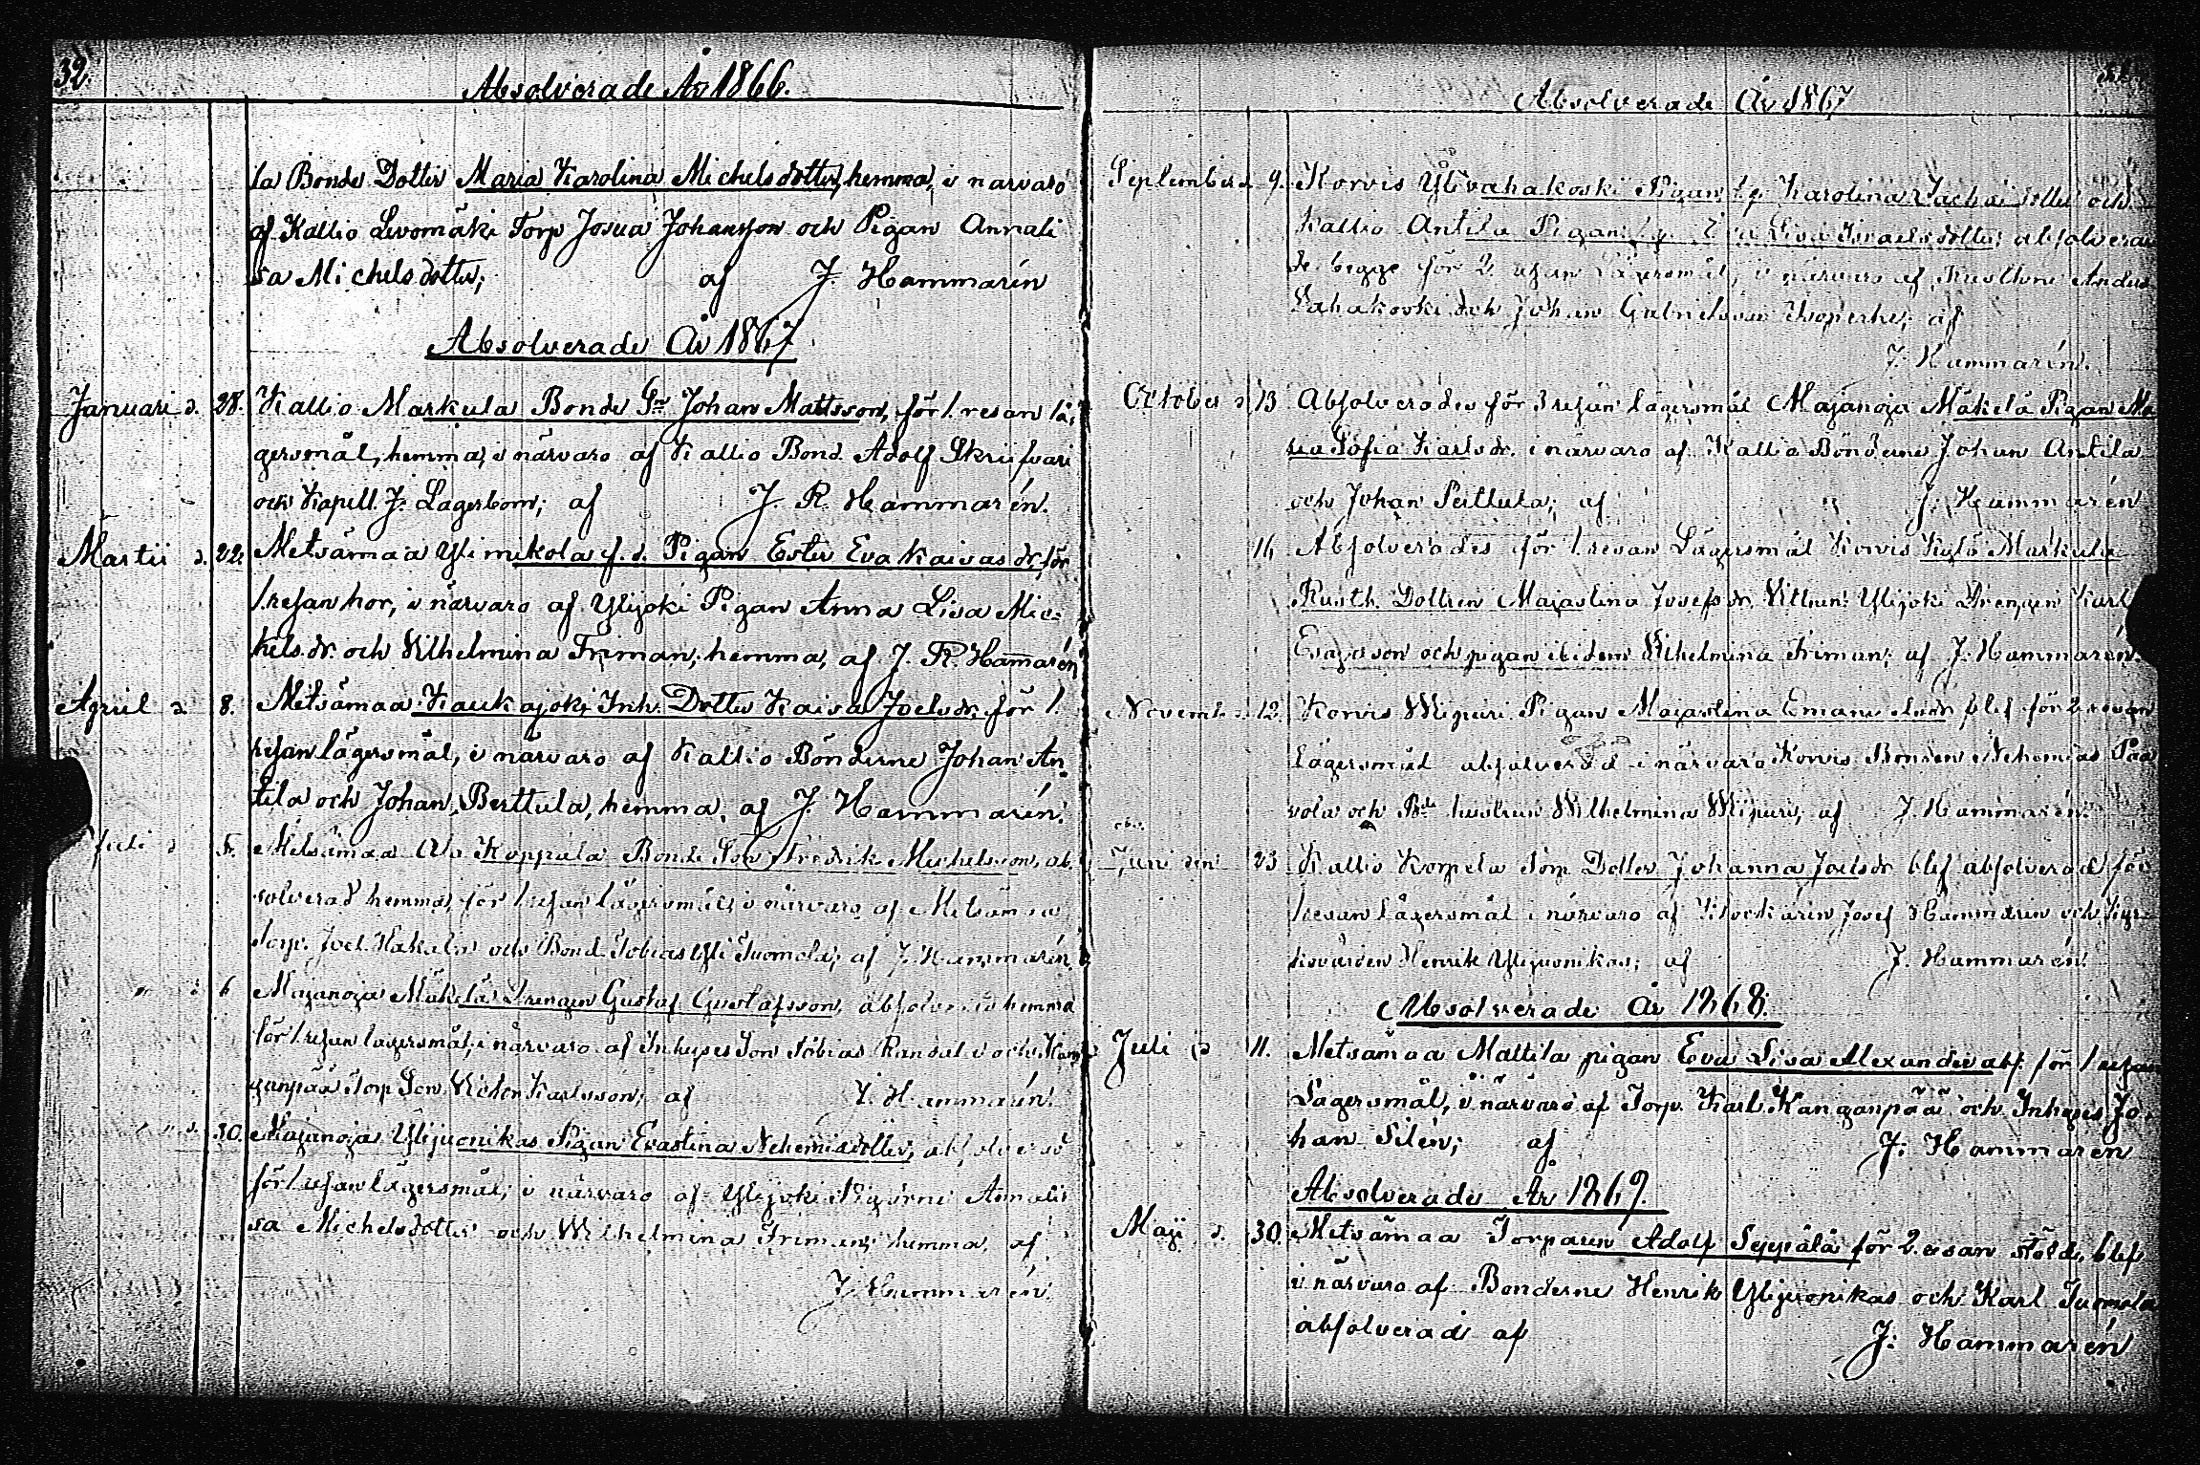 32.
Absolverade År 1866.
la Bonde Dotter Maria Karolina Michelsdotter, hemma, i närvaro
af Kallio Levomäki Torp Josua Johansson och Pigan Annali
sa Michelsdotter; af J. Hammarén
Absolverade År 1867
Januari d. 28. Kallio Markula Bonde Sn Johan Mattsson, för 1. resan lä-
gersmål, hemma, i närvaro af Kallio Bond. Adolf Skrifvari
och Kapell. J. Lagerbom; af J. R. Hammarén.
Martii d. 22. Metsämaa Ylimikola f. d. Pigan Ester Eva Kaisasdr. för
1. resan hor, i närvaro af Ylijoki Pigan Anna Lisa Mic-
kelsdr. och Vilhelmina Friman, hemma, af J. R. Hammarén
April d. 8. Metsämaa Kaukajoki Inh. Dotter Kaisa Joelsdr. för 1.
resan lägersmål, i närvaro af Kallio Bönderne Johan An-
tila och Johan Perttula, hemma, af J. Hammarén.
Juli d 5. Metsämaa Ala Koppala Bonde Son Fredrik Michelsson, ab-
solverad hemma, för 1 resan lägersmål, i närvaro af Metsämaa
Torp. Joel Hakala och Bond. Tobias Yli Tuomola; af J. Hammarén.
" d 6 Majanoja Mäkelä Drengen Gustaf Gustafsson, absolverad hemma
för 1 resan lägersmål, i närvaro af Inhyses Son Tobias Randal och Kan-
ganpää Torp Son Victor Karlsson; af J. Hammarén.
" d. 30. Majanoja Ylijuonikas Pigan Evastina Nehemisdotter, absolverad
för 1 resan lägersmål, i närvaro af Ylijoki Pigorne Annali
sa Michelsdotter och Wilhelmina Friman; hemma, af
J. Hammarén.
Absolverade År 1867
September d. 9. Korvis Yli Pigan Karolina och
Kallio Antila Pigan Eva Lisa Israelsdotter; absolvera
de begge för 2. resan Lägersmål, i närvaro af Anders
Lahakoski och Johan Gabrielsson Isoperhe; af
J. Hammarén.
October d 13 Absolverades för 3 resan lägersmål Majanoja Mäkelä Pigan Ma
ria Sofia Karlsdr. i närvaro af Kallio Bönderne Johan Antila
och Johan Pertula; af J. Hammarén
16 Absolverades för 1. resan Lägersmål Korvis Markula
Rusth. Dottren Majastina Josefsdr. Ylijoki Drengen Karl
Esajason och pigan ibidem Vilhelmina Friman; af J. Hammarén.
Novemb. d. 12. Korvis Wipuri Pigan Majastina blef för 2. resan
lägersmål absolverad i närvaro Korvis Bonden Nehemias Paa
vola och Bde hustrun Wilhelmina Wipuri; af J. Hammarén.
Juni den 23 Kallio Korpela Torp Dotter Johanna Joelsdr. blef absolverad för
1 resan lägersmål i närvaro af Klockaren Josef Hammarén och Kyr-
kovärden Henrik Ylijuonikas; af J. Hammarén.
Absolverade År 1868.
Juli d 11. Metsämaa Mattila pigan Eva Lisa Alexander abs. för 1 resan
Lägersmål, i närvaro af Torp. Karl Kanganpää och Inhyses Jo-
han Silén; af J. Hammarén
Absolverade År 1869.
Maji d. 30. Metsämaa Torparen Adolf Seppälä för 2. resan stöld, blef
i närvaro af Bönderne Henrik Ylijuonikas och Karl Tuomola
absolverad af J. Hammarén